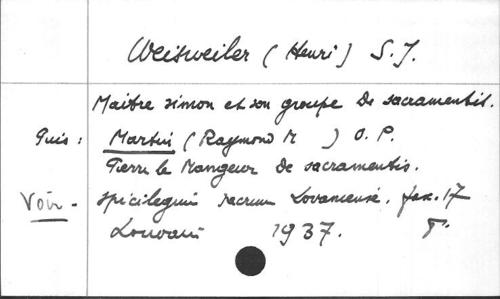 Weisweiler (Henri) S. J.
Maitre Simon et son groupe De sacramentis.
Puis : Martin (Raymond M ) O. P.
Pierre le Mangeur De sacramentis.
Voir - Spicilegium sacrum Lovaniense. fasc. 17
Louvain 1937.